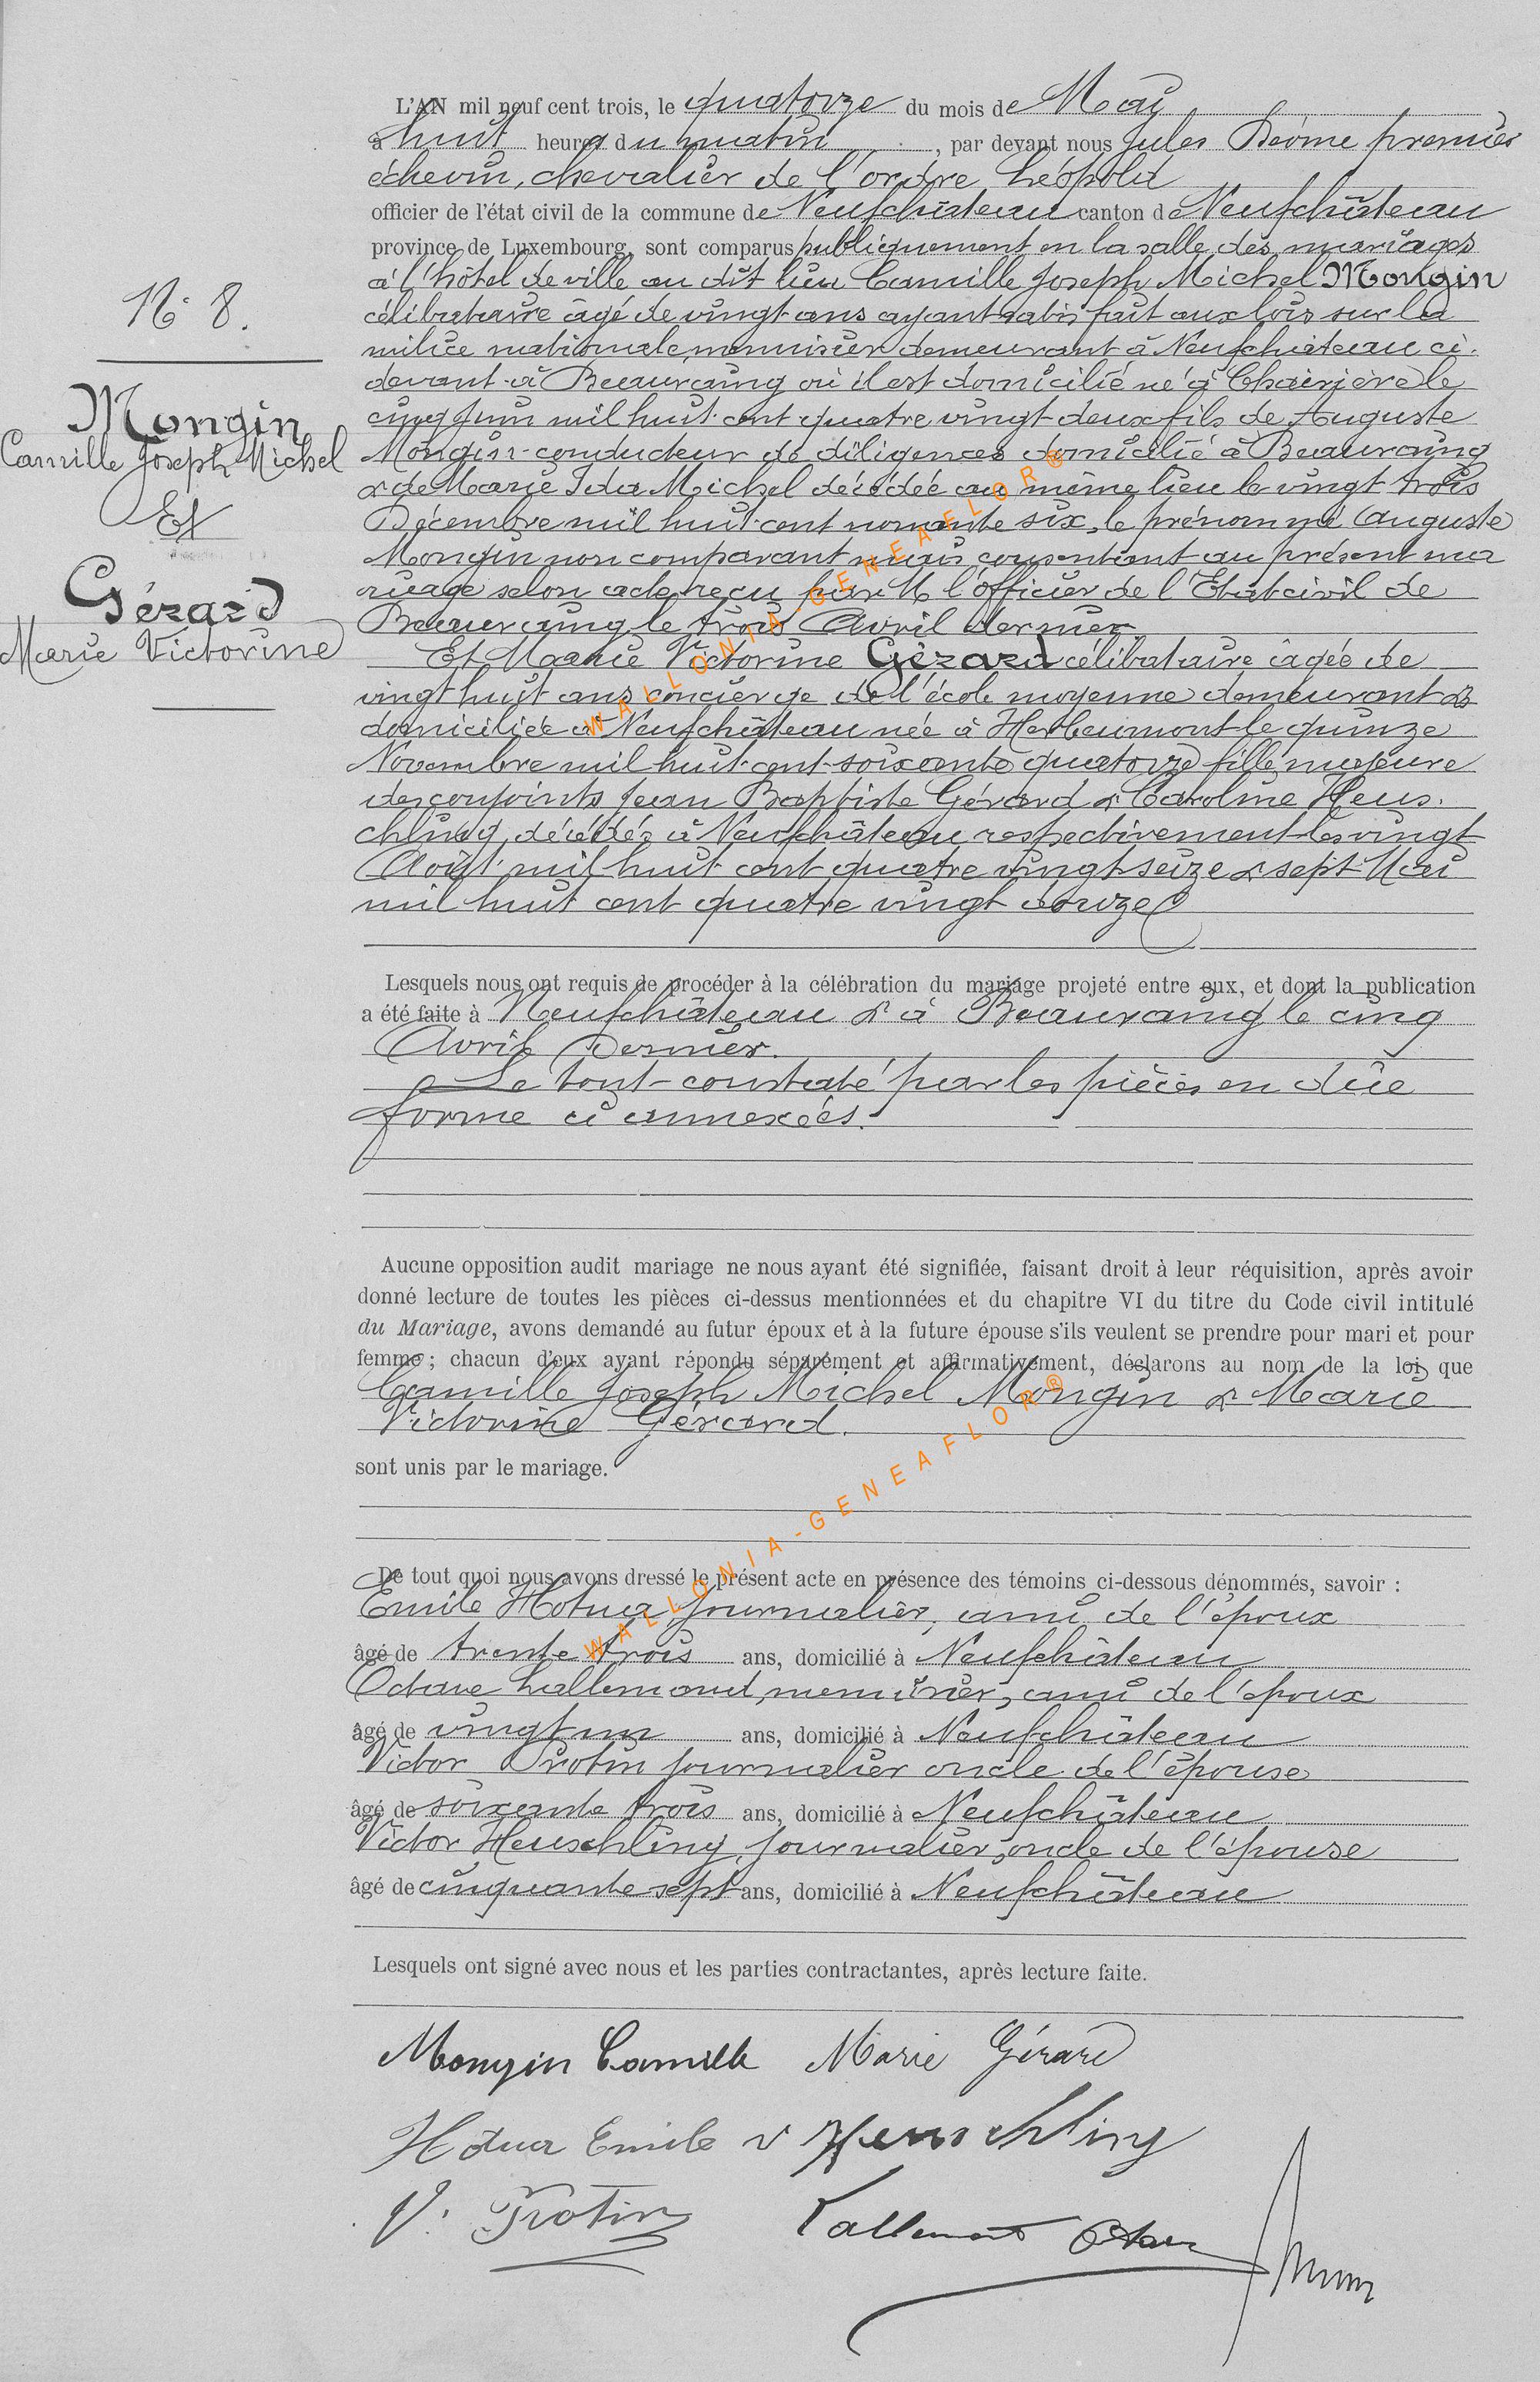 N° 8.
Mongin
Camille Joseph Michel
Et
Gérard
Marie Victorine
L'AN mil neuf cent trois, le quatorze du mois de Mai
à huit heures du matin, par devant nous Jules Derôme premier
échevin, chevalier de l'ordre Léopold
officier de l'état civil de la commune de Neufchâteau canton de Neufchâteau
province de Luxembourg, sont comparus publiquement en la salle des mariages
à l'hôtel de ville au dit lieu Camille Joseph Michel Mongin
célibataire âgé de vingt ans ayant satisfait aux lois sur la
milice nationale, menuisier demeurant à Neufchâteau ci-
devant à Beauraing où il est domicilié né à Chairière le
cinq Juin mil huit cent quatre vingt deux fils de Auguste
Mongin conducteur de diligences domicilié à Beauraing
& de Marie Ida Michel décédée au même lieu le vingt trois
Décembre mil huit cent nonante six, le prénommé Auguste
Mongin non comparant mais consentant au présent ma
riage selon acte reçu par M l'Officier de l'Etat civil de
Beauraing le trois Avril dernier
Et Marie Victorine Gérard célibataire âgée de
vingt huit ans concierge de l'école moyenne demeurant &
domiciliée à Neufchâteau née à Herbeumont le quinze
Novembre mil huit cent soixante quatorze fille majeure
des conjoints Jean Baptiste Gérard & Caroline Heus-
chling, décédés à Neufchâteau respectivement les vingt
Août mil huit cent quatre vingt seize & sept Mai
mil huit cent quatre vingt douze
Lesquels nous ont requis de procéder à la célébration du mariage projeté entre eux, et dont la publication
a été faite à Neufchâteau & à Beauraing le cinq
Avril dernier.
Le tout constaté par les pièces en dûe
forme ci annexées.
Aucune opposition audit mariage ne nous ayant été signifiée, faisant droit à leur réquisition, après avoir
donné lecture de toutes les pièces ci-dessus mentionnées et du chapitre VI du titre du Code civil intitulé
du Mariage, avons demandé au futur époux et à la future épouse s'ils veulent se prendre pour mari et pour
femme ; chacun d'eux ayant répondu séparément et affirmativement, déclarons au nom de la loi que
Camille Joseph Michel Mongin & Marie
Victorine Gérard.
sont unis par le mariage.
De tout quoi nous avons dressé le présent acte en présence des témoins ci-dessous dénommés, savoir :
Emile Hotua, journalier, ami de l'époux
âgé de trente trois ans, domicilié à Neufchâteau
Octave Lallemand, menuisier, ami de l'époux
âgé de vingt un ans, domicilié à Neufchâteau
Victor Protin journalier oncle de l'épouse
âgé de soixante trois ans, domicilié à Neufchâteau
Victor Heuschling, journalier, oncle de l'épouse
âgé de cinquante sept ans, domicilié à Neufchâteau
Lesquels ont signé avec nous et les parties contractantes, après lecture faite.
Mongin Camille Marie Gérard
Hotua Emile V Heuschling
V. Protin Lallemand Octave
WALLONIA-GENEAFLOR®
WALLONIA-GENEAFLOR®